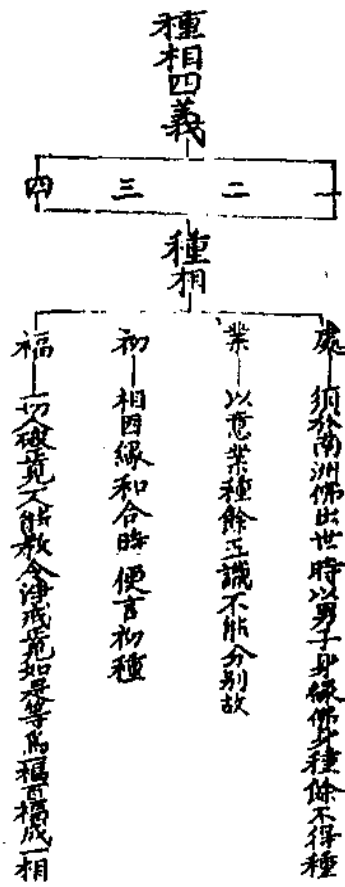 種相四義
一
二
三
四
種相
處—須於南洲佛出世時以男子身緣佛身種餘不得種
業—以意業種餘五識不能分別故
初—相因緣和合時便言初種
福—一切人破戒竟又能教令淨戒竟如是等為福百福成一相